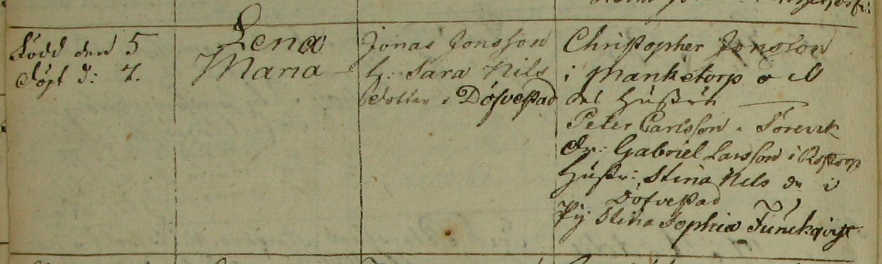 Född den 5
döpt d: 7.
Lena
Maria
Jonas Jonsson
h: Sara Nils
dotter i Döfvestad
Christopher Jonsson
i Manketorp o
des Hustru
Peter Carlsson
Dr: Gabriel Larsson i
Hustr: Stina Nils dr i
Döfvestad
Pig Stina Sophia